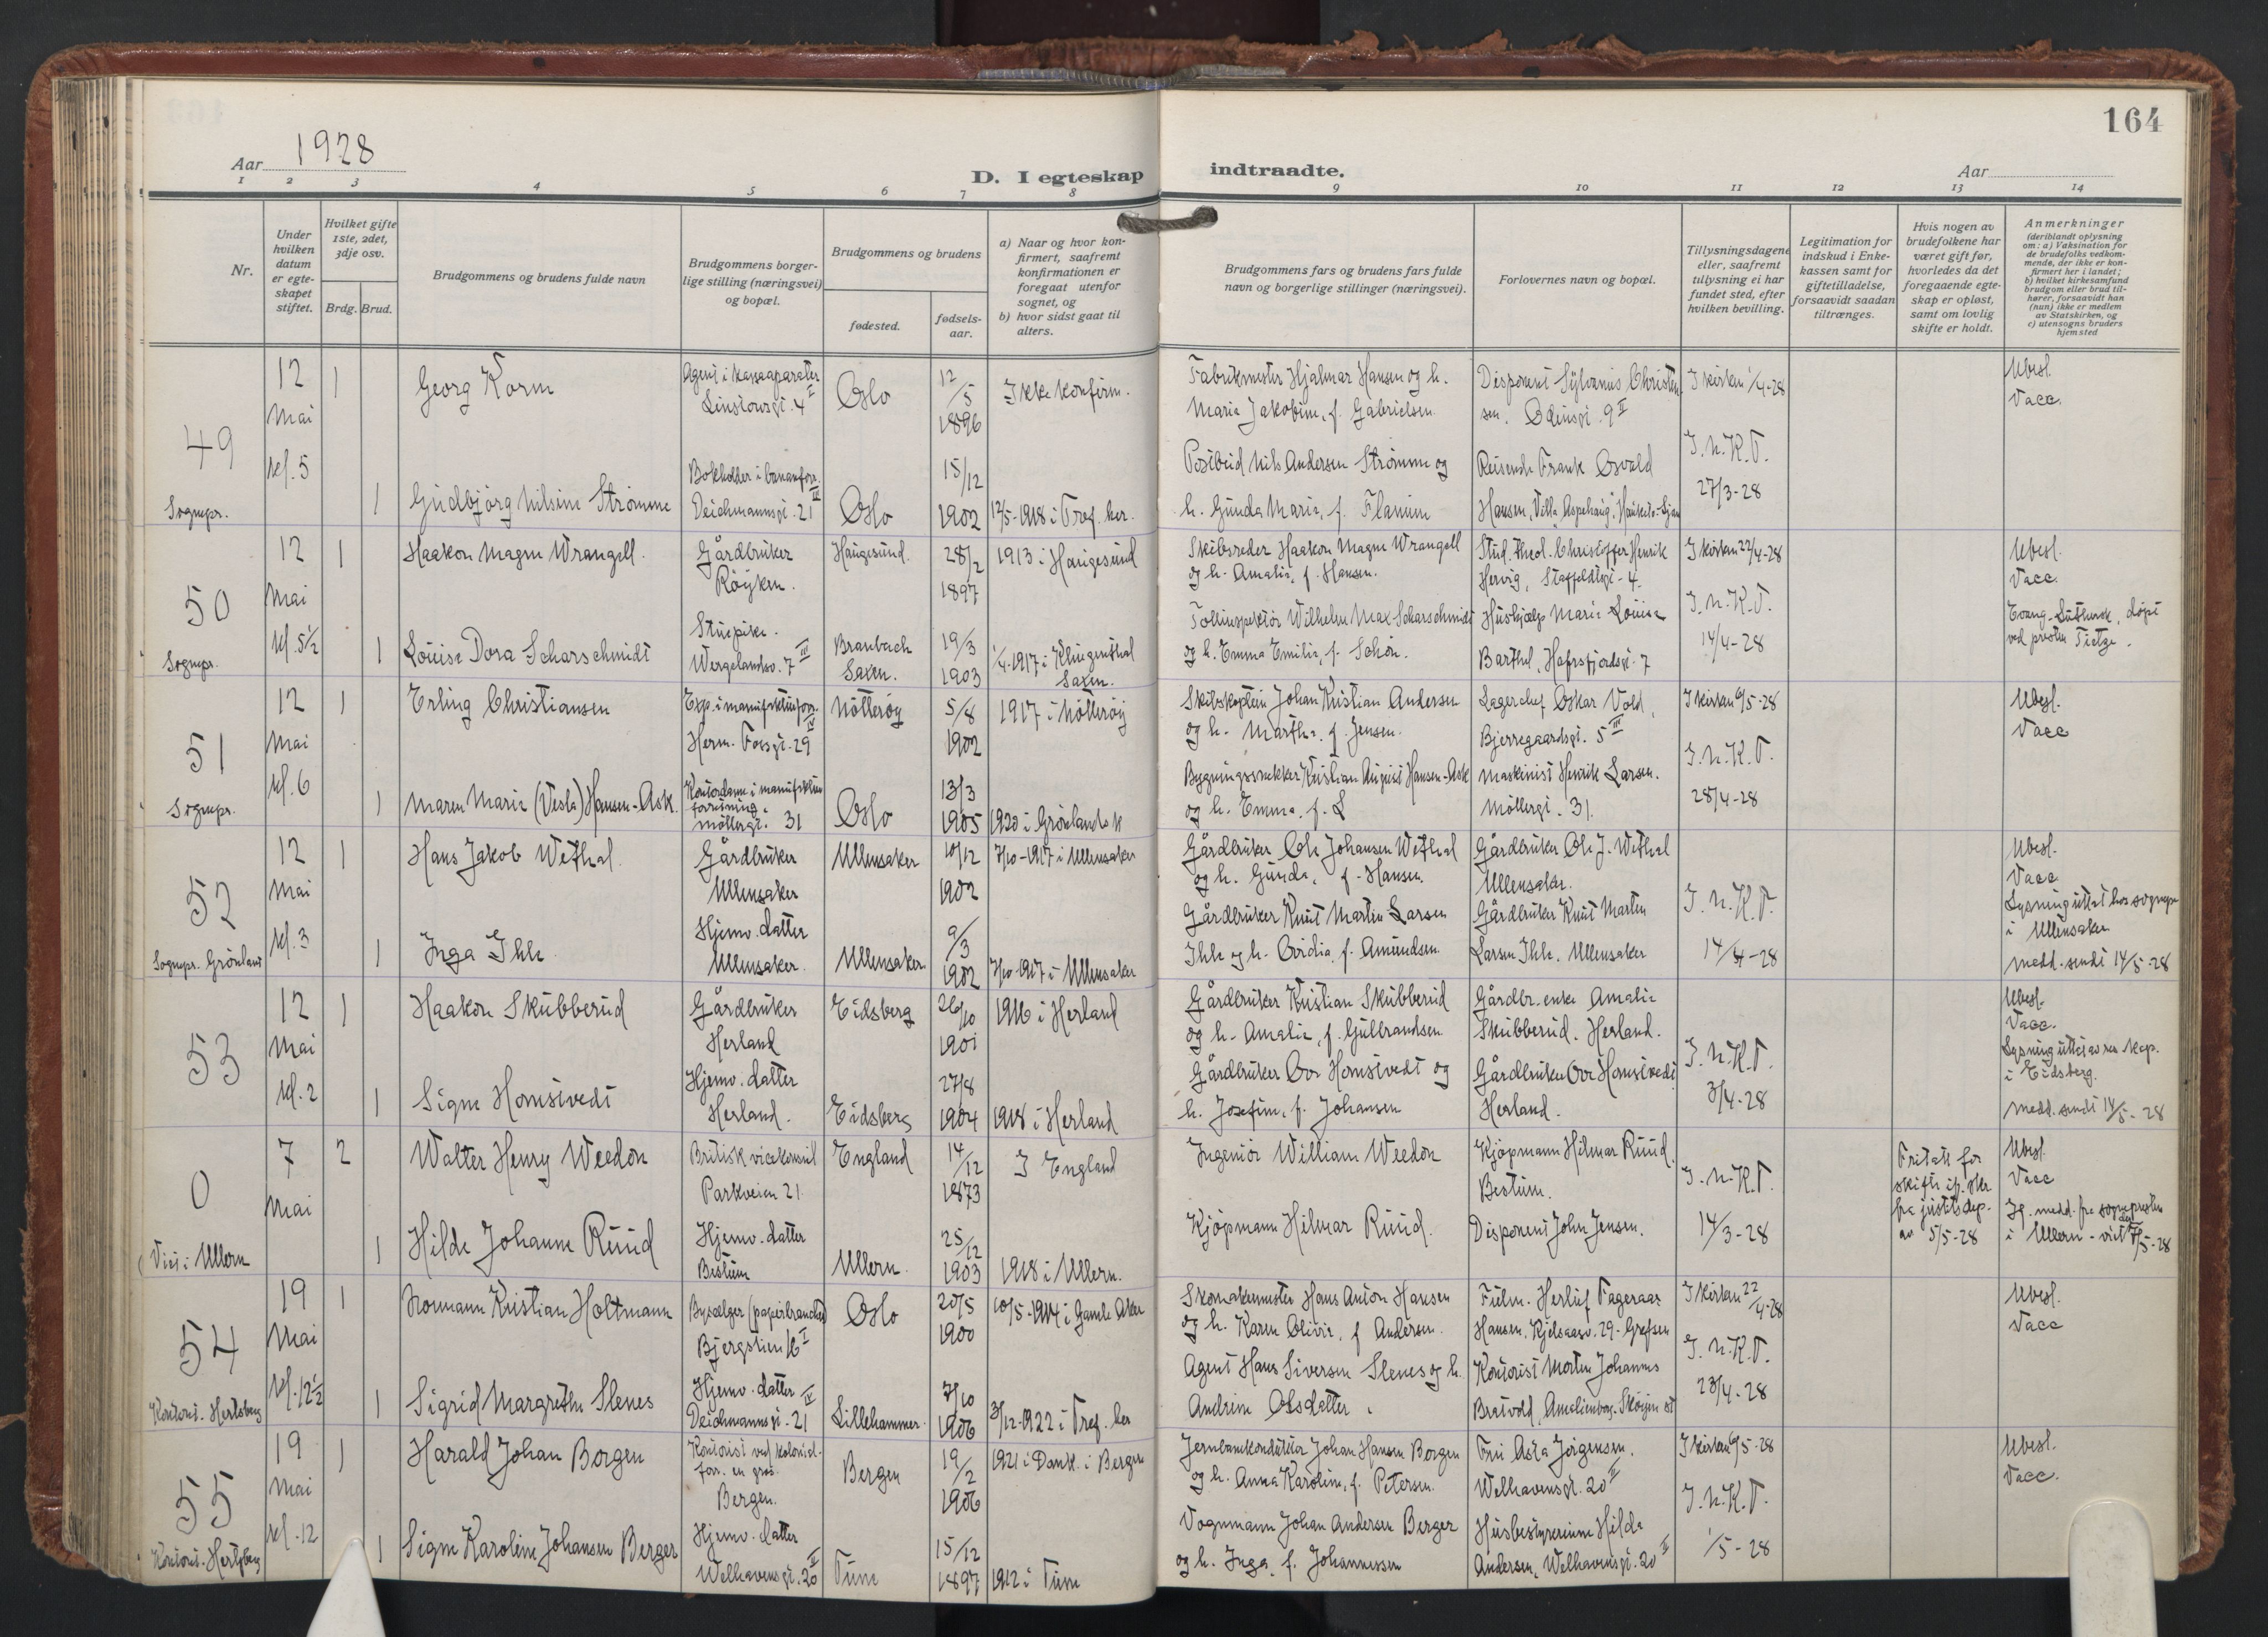 164
Aar 1928
D. I egteskap indtraadte.
Aar
1 2 3 4 5 6 7 8 9 10 11 12 13 14
Nr.
Under hvilken datum er egteskapet stiftet.
Hvilket gifte 1ste, 2det, 3dje osv.
Brdg. Brud.
Brudgommens og brudens fulde navn
Brudgommens borgerlige stilling (næringsvei) og bopæl.
Brudgommens og brudens
fødested.
fødselsaar.
a) Naar og hvor konfirmert, saafremt konfirmationen er foregaat utenfor sognet, og
b) hvor sidst gaat til alters.
Brudgommens fars og brudens fars fulde navn og borgerlige stillinger (næringsvei).
Forlovernes navn og bopæl.
Tillysningsdagene eller, saafremt tillysning ei har fundet sted, efter hvilken bevilling.
Legitimation for indskud i Enkekassen samt for giftetilladelse, forsaavidt saadan tiltrænges.
Hvis nogen av brudefolkene har været gift før, hvorledes da det foregaaende egteskap er opløst, samt om lovlig skifte er holdt.
Anmerkninger (deriblandt oplysning om: a) Vaksination for de brudefolks vedkommende, der ikke er konfirmert her i landet; b) hvilket kirkesamfund brudgom eller brud tilhører, forsaavidt han (hun) ikke er medlem av Statskirken, og c) utensogns bruders hjemsted
49
Sognepr.
12 Mai kl. 5
1 Georg Korm
Agent i kassaaparater
Linstowsgt. 4 II
Oslo
12/5 1896
Ikke konfirm.
Fabrikmester Hjalmar Hansen og h.
Maria Jakobine, f. Gabrielsen
Disponent Sylvanus Christensen. Odinsgt. 9 II
I kirken 1/4-28
Ubesl.
Vacc.
1 Gudbjørg Nilsine Strømme
Bokholder i bananforr.
Deichmannsgt. 21 III
Oslo
15/12 1902
12/5-1918 i Tref. her.
Postbud Nils Andersen Strømme og
h. Gunda Maria, f. Flamum
Reisende Frank Osvald
Hansen, Villa Aspehaug,
J.n.K.T.
27/3-28
50
Sognepr.
12 Mai kl. 5 1/2
1 Haakon Magne Wrangell.
Gårdbruker
Røyken.
Haugesund.
28/2 1897
1913 i Haugesund
Skibsreder Haakon Magne Wrangell
og h. Amalie, f. Hansen.
Stud. theol. Christoffer Henrik
Hervig, Staffeldtsgt. 4.
I kirken 22/4-28
Ubesl.
Vacc.
1 Louise Dora Scharschmidt
Stuepike.
Wergelandsv. 7 III
Saxen.
19/3 1903
1/4-1917 i Klingenthal
Saxen.
Tollinspektør Wilhelm Max Scharschmidt
og h. Emma Emilie, f. Schön.
Hushjælp Marie Louise
Barthel, Hafrsfjordsgt. 7
J.n.K.T.
14/4-28
Evang. Luthersk, døpt
ved presten Tietze.
51
Sognepr.
12 Mai kl. 6
1 Erling Christiansen
Exp. i manufakturforr.
Herm. Fossgt. 29 IV
Nøtterøy
5/8 1902
1917 i Nøtterøy
Skibskaptein Johan Kristian Andersen
og h. Martha, f. Jensen.
Lagerchef Oskar Vold,
Bjerregaardsgt. 5 III
I kirken 6/5-28
Ubesl.
Vacc
1 Maren Marie (Vesla) Hansen-Ask.
Kontordame i manufaktur
forretning.
Møllergt. 31
Oslo
13/3 1905
1920 i Grønlands k
Bygningssnekker Kristian August Hansen-Ask
og h. Emma, f. L
Maskinist Henrik Larsen.
Møllergt. 31.
J.n.K.T.
28/4-28
52
Sognepr. Grønland
12 Mai kl. 3
1 Hans Jakob Wethal.
Gårdbruker
Ullensaker
Ullensaker
10/12 1902
7/10-1917 i Ullensaker
Gårdbruker Ole Johansen Wethal
og h. Gunda, f. Hansen.
Gårdbruker Ole J. Wethal
Ullensaker.
Ubesl.
Vacc
Lysning uttat hos sognepr
i Ullensaker
medd. sendt 14/5-28
1 Inga Ihle
Hjemv. datter
Ullensaker.
Ullensaker
9/3 1902
7/10-1917 i Ullensaker
Gårdbruker Knut Martin Larsen
Ihle og h. Ovidia, f. Amundsen.
Gårdbruker Knut Marten
Larsen Ihle. Ullensaker
J.n.K.T.
14/4-28
53
12 Mai kl. 2
1 Haakon Skubberud
Gårdbruker
Herland
Eidsberg
26/10 1901
1916 i Herland
Gårdbruker Kristian Skubberud
og h. Amalie, f. Gulbrandsen
Gårdbr.enke Amalie
Skubberud. Herland.
Ubesl.
Vacc.
Lysning uttat av res. kap.
i Eidsberg.
medd. sendt 14/5-28
1 Signe Homstvedt
Hjemv. datter
Herland.
Eidsberg
27/8 1904
1918 i Herland
Gårdbruker Ove Homstvedt og
h. Josefine, f. Johansen
Gårdbruker Ove Homstvedt
Herland.
J.n.K.T.
3/4-28
0
Viet i Ullern
7 Mai
2 Walter Henry Weedon
Britisk vicekonsul
Parkveien 21
England
14/12 1873
I England
Ingeniør William Weedon
Kjøpmann Hilmar Ruud.
Bestum.
J.n.K.T.
14/3-28
Fritatt for
skifte ifl. skr.
fra justitsdep.
av 5/5-28
Ubesl.
Vacc
If. medd. fra sognepresten
i Ullern - viet 7/5-28
1 Hilde Johanne Ruud
Hjemv. datter
Bestum
Ullern.
25/12 1903
1918 i Ullern.
Kjøpmann Hilmar Ruud.
Disponent John Jensen.
54
Kontorist. Hertsberg
19 Mai kl. 12 1/2
1 Normann Kristian Holtmann
Bysælger (papirbranchen)
Bjergstien 16 I
Oslo
20/5 1900
10/5-1914 i Gamle Aker
Skomakermester Hans Anton Hansen
og h. Karen Olivie, f. Andersen.
Fulm. Herluf Fageraas
Hansen, Kjelsaasv. 29 - Grefsen
I kirken 22/4-28
Ubesl.
Vacc
1 Sigrid Margrethe Slenes
Hjemv. datter
Deichmannsgt. 21 IV
Lillehammer.
7/10 1906
3/12-1922 i Tref. her
Agent Hans Siversen Slenes og h.
Andrine Olsdatter.
Kontorist Morten Johannes
Bratvold, Amalienborg. Skøyen st
J.n.K.T.
23/4-28
55
Kontorist. Hertsberg
19 Mai kl. 12
1 Harald Johan Borgen
Kontorist ved kolonial-
forr. en gros.
Bergen.
Bergen
19/2 1906
1921 i Domk. i Bergen
Jernbanekonduktør Johan Hansen Borgen
og h. Anna Karoline, f. Petersen.
Fru Asta Jørgensen.
Welhavensgt. 20 II
I kirken 6/5-28
Ubesl.
Vacc.
1 Signe Karoline Johansen Berger
Hjemv. datter
Welhavensgt. 20 II
Tune
15/12 1897
1912 i Tune
Vognmann Johan Andersen Berger
og h. Inga, f. Johannessen
Husbestyrerinne Hilda
Andersen, Welhavensgt. 20 II
J.n.K.T.
1/5-28